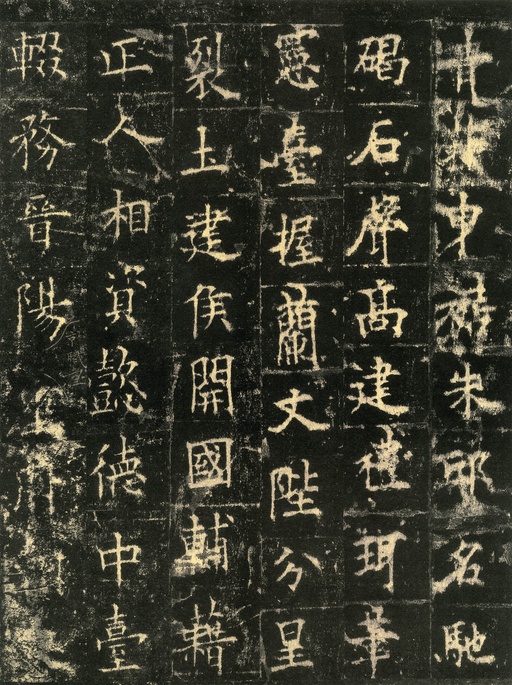 申朱邸名馳
碣石聲高建禮珥筆
憲臺握蘭文陛分星
裂土建侯開國輔藉
正人相資懿德中臺
輟務晉陽